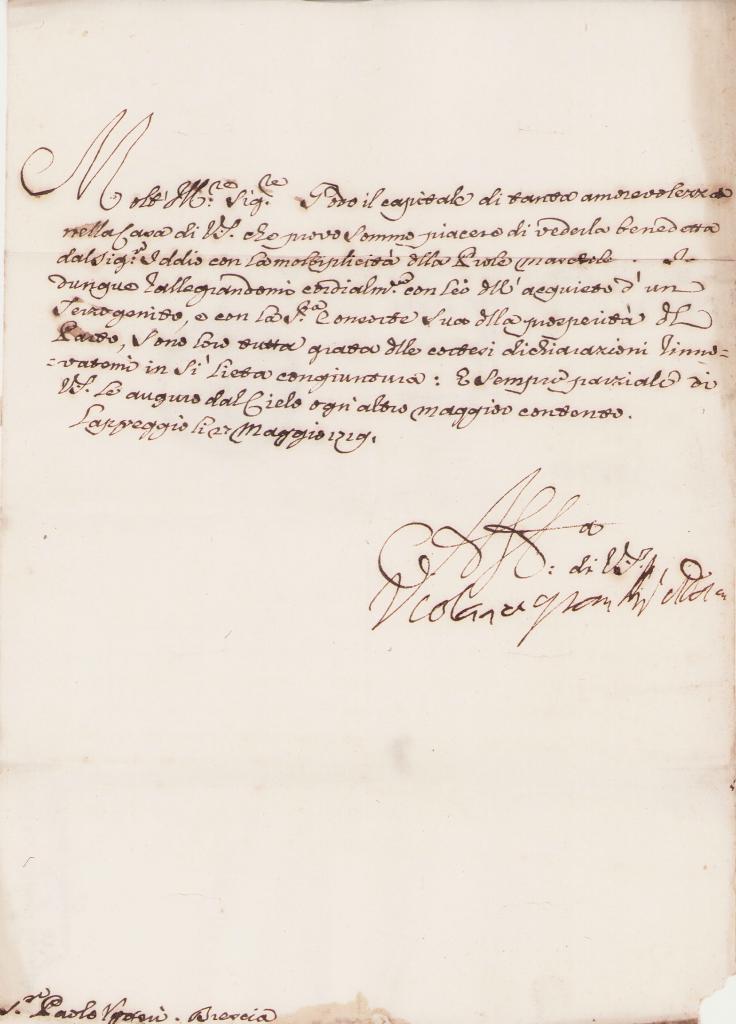 Molt' Ill.re Sig.re Fo so il capitale di tanta amorevolezza
nella Casa di V.S. che provo sommo piacere di vederla benedetta
dal Sig.re Iddio con la moltiplicità della Prole maschile. Io
dunque rallegrandomi cordialm.te con Lei dell' acquisto d' un
Terzogenito, e con la S.ra Consorte Sua della prosperità del
Parto, sono loro tutta grata delle cortesi dichiarazioni rinno=
=vatemi in sì lieta congiuntura: E sempre parziale di
V.S. le auguro dal Cielo ogn' altro maggior contento.
Lappeggio li 27 Maggio 1719.
Aff.a
: di V.S.
Violante gran
S.re Paolo . Brescia